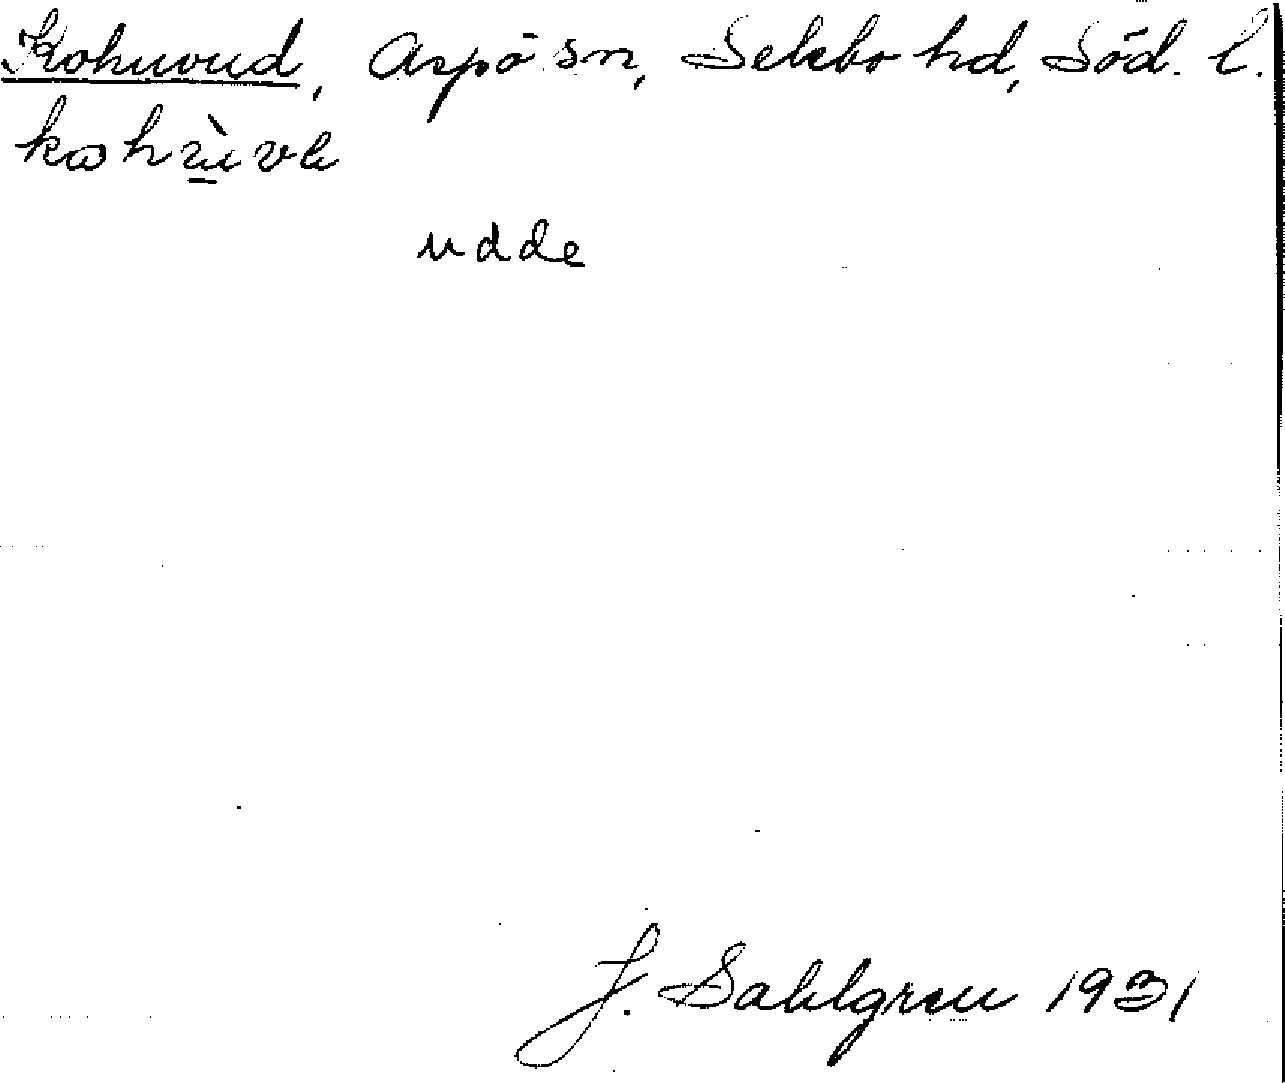 Kohuvud, Aspö sn, Selebo hd, Söd. l.
udde
J. Sahlgren 1931